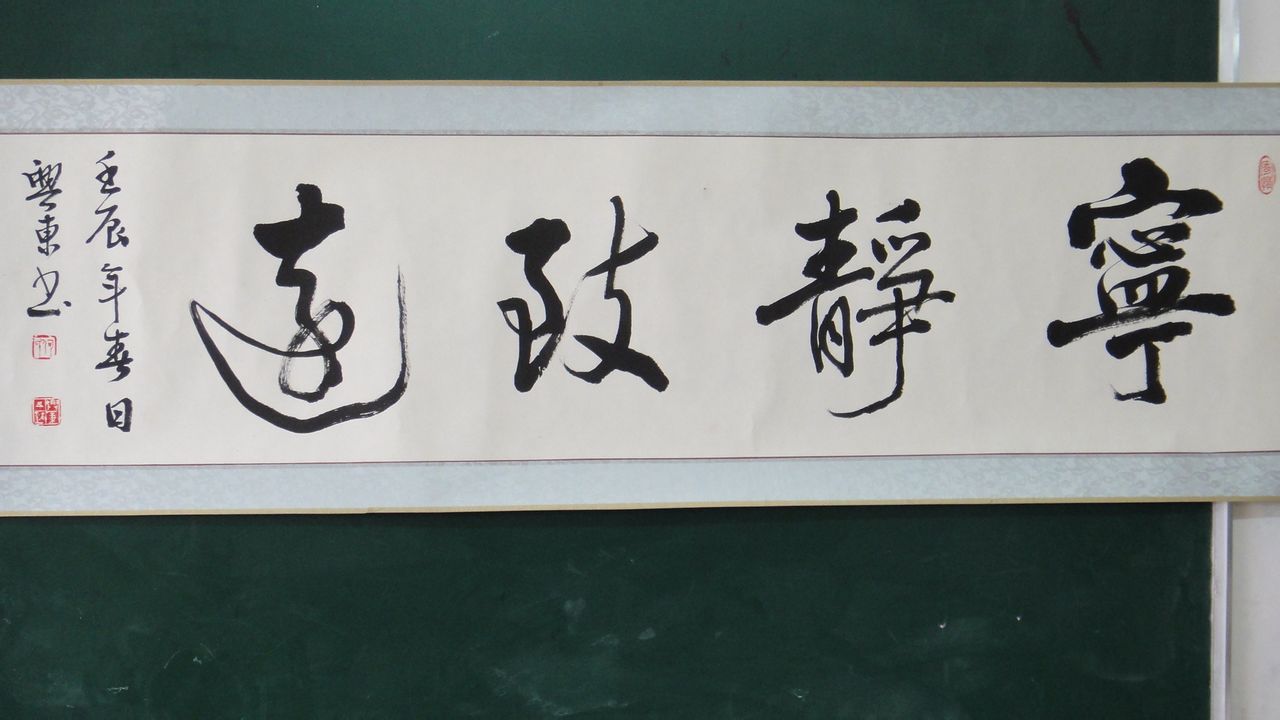 寧靜致遠
壬辰年春日
興東书